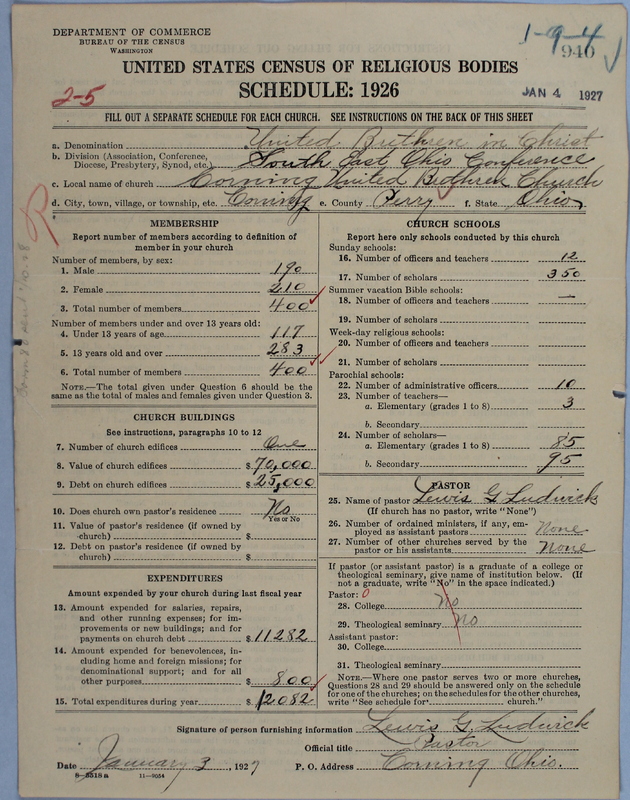 DEPARTMENT OF COMMERCE
BUREAU OF THE CENSUS
WASHINGTON
1-9-4
940
UNITED STATES CENSUS OF RELIGIOUS BODIES
SCHEDULE: 1926
2-5
JAN 4 1927
FILL OUT A SEPARATE SCHEDULE FOR EACH CHURCH. SEE INSTRUCTIONS ON THE BACK OF THIS SHEET
a. Denomination United Brethren in Christ
b. Division (Association, Conference, Diocese, Presbytery, Synod, etc.) South East Ohio Conference
c. Local name of church Corning United Brethren Church
d. City, town, village, or township, etc. Corning e. County Perry f. State Ohio
MEMBERSHIP
Report number of members according to definition of
member in your church
Number of members, by sex:
1. Male 190
2. Female 210
3. Total number of members 400
Number of members under and over 13 years old:
4. Under 13 years of age 117
5. 13 years old and over 283
6. Total number of members 400
NOTE.—The total given under Question 6 should be
same as the total of males and females given under Question 3.
CHURCH BUILDINGS
See instructions, paragraphs 10 to 12
7. Number of church edifices One
8. Value of church edifices $ 70,000
9. Debt on church edifices $ 25,000
10. Does church own pastor's residence No
Yes or No
11. Value of pastor's residence (if owned by
church) $
12. Debt on pastor's residence (if owned by
church) $
EXPENDITURES
Amount expended by your church during last fiscal year
13. Amount expended for salaries, repairs,
and other running expenses; for im-
provements or new buildings; and for
payments on church debt $ 11282
14. Amount expended for benevolences, in-
cluding home and foreign missions; for
denominational support; and for all
other purposes $ 800
15. Total expenditures during year $ 12082
CHURCH SCHOOLS
Report here only schools conducted by this church
Sunday schools:
16. Number of officers and teachers 12
17. Number of scholars 350
Summer vacation Bible schools:
18. Number of officers and teachers —
19. Number of scholars
Week-day religious schools:
20. Number of officers and teachers
21. Number of scholars
Parochial schools:
22. Number of administrative officers 10
23. Number of teachers—
a. Elementary (grades 1 to 8) 3
b. Secondary
24. Number of scholars—
a. Elementary (grades 1 to 8) 85
b. Secondary 95
PASTOR
25. Name of pastor Lewis G Ludwick
(If church has no pastor, write "None")
26. Number of ordained ministers, if any, em-
ployed as assistant pastors None
27. Number of other churches served by the
pastor or his assistants None
If pastor (or assistant pastor) is a graduate of a college or
theological seminary, give name of institution below. (If
not a graduate, write "No" in the space indicated.)
Pastor: 0
28. College No
29. Theological seminary No
Assistant pastor:
30. College
31. Theological seminary
NOTE.—Where one pastor serves two or more churches,
Questions 28 and 29 should be answered only on the schedule
for one of the churches; on the schedules for the other churches,
write "See schedule for church."
Signature of person furnishing information Lewis G. Ludwick
Official title Pastor
Date January 3, 1927 P. O. Address Corning Ohio.
8—5518a 11—9054